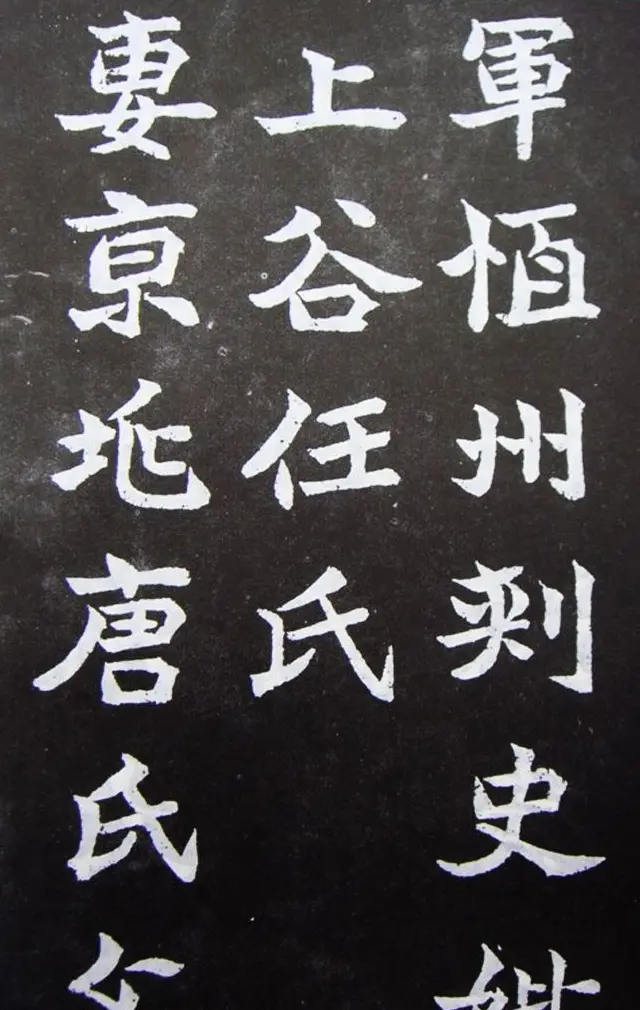 軍恒州刺史
上谷任氏
妻京兆唐氏